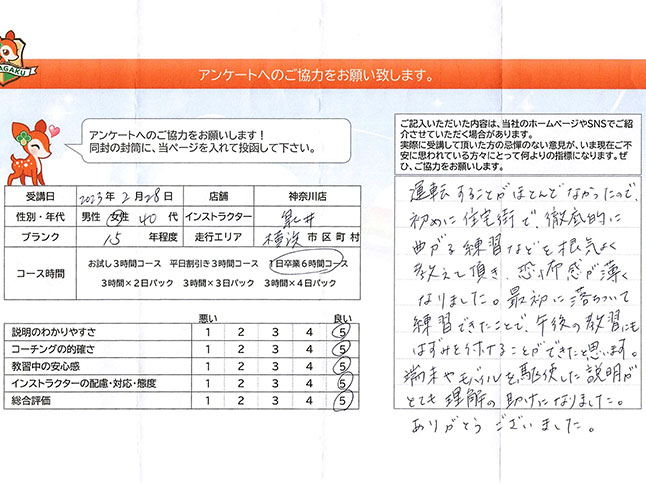 AGAKU
アンケートへのご協力をお願い致します。
アンケートへのご協力をお願いします!
同封の封筒に、当ページを入れて投函して下さい。
受講日 2023年 2月 28日 店舗 神奈川店
性別・年代 男性 女性 40 代 インストラクター 井
ブランク 15 年程度 走行エリア 横浜 市区町村
コース時間
お試し3時間コース 平日割引き3時間コース 1日卒業6時間コース
3時間×2日パック 3時間×3日パック 3時間×4日パック
悪い 良い
説明のわかりやすさ 1 2 3 4 5
コーチングの的確さ 1 2 3 4 5
教習中の安心感 1 2 3 4 5
インストラクターの配慮・対応・態度 1 2 3 4 5
総合評価 1 2 3 4 5
ご記入いただいた内容は、当社のホームページやSNSでご紹
介させていただく場合があります。
実際に受講して頂いた方の忌憚のない意見が、いま現在ご不
安に思われている方々にとって何よりの指標になります。ぜ
ひ、ご協力をお願いいたします。
運転することがほとんどなかったので、
初めに住宅街で、徹底的に
曲がる練習などを根気よく
教えて頂き、恐怖感が薄く
なりました。最初に落ちついて
練習できたことで、午後の教習にも
はずみを付けることができたと思います。
端末やモバイルを駆使した説明が
とても理解の助けになりました。
ありがとうございました。